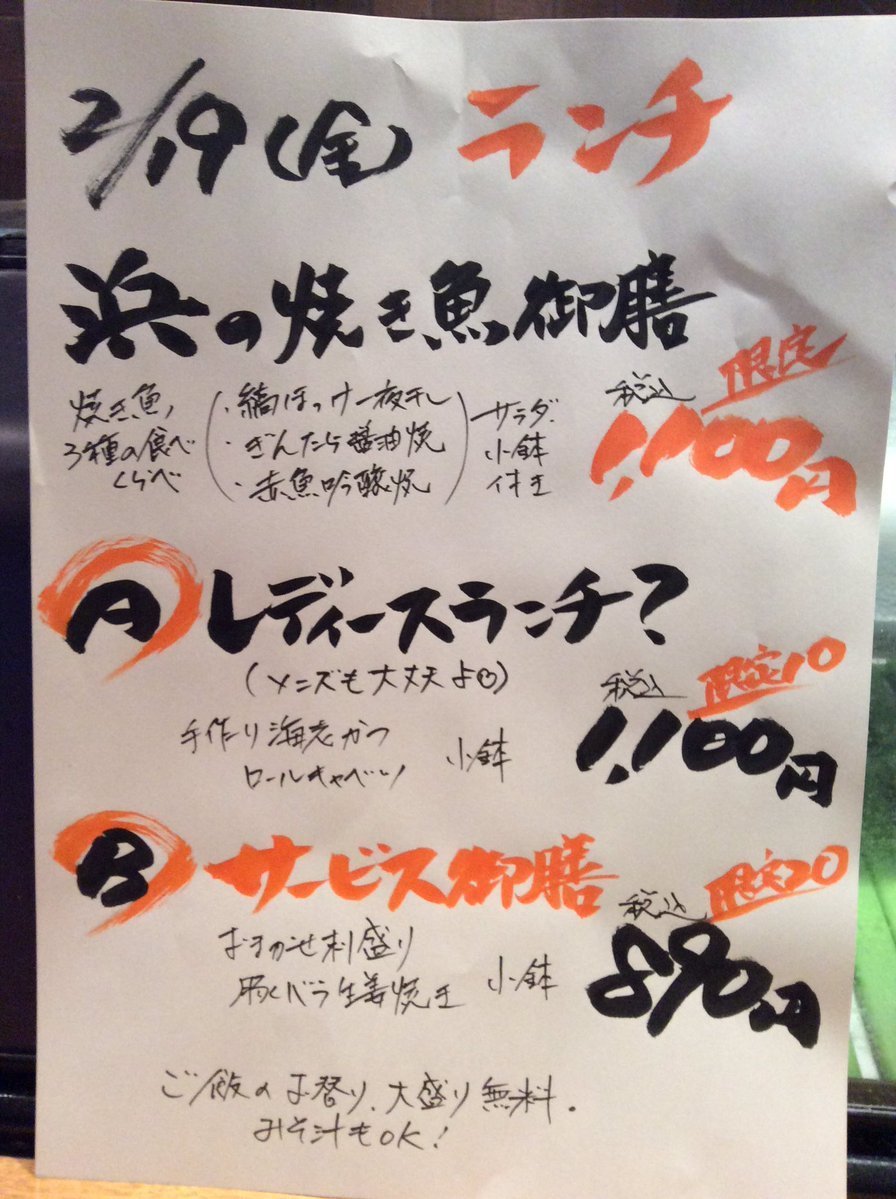 2/19(金) ランチ
浜の焼き魚御膳
焼き魚、
3種の食べ
くらべ
・縞ほっけ一夜干し
・ぎんたら醤油焼
・赤魚吟醸焼
サラダ、
小鉢
付き
限定
税込
1,100円
A レディースランチ?
(メンズも大丈夫よ)
手作り海老かつ
ロールキャベツ
小鉢
限定10
税込
1,100円
B サービス御膳
おまかせ刺盛り
豚バラ生姜焼き
小鉢
限定20
税込
890円
ご飯のお替り、大盛り無料。
みそ汁もOK!